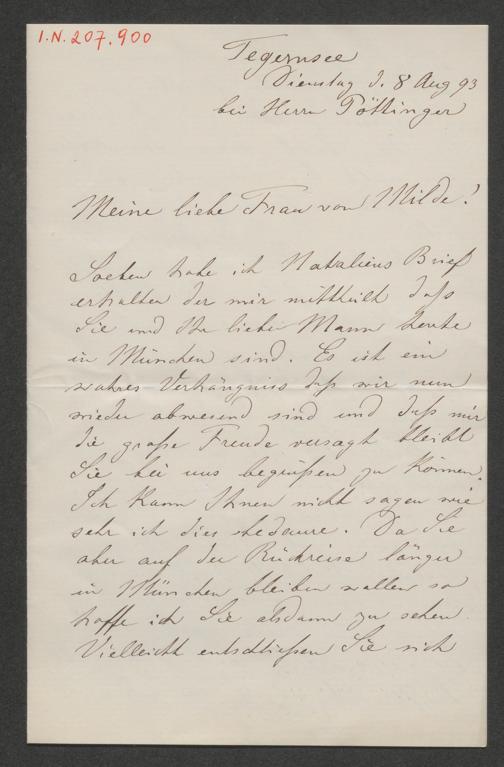 I.N. 207.900
Tegernsee
Dienstag d. 8 Aug 93
bei Herrn Pöttinger
Meine liebe Frau von Milde!
Soeben habe ich Nataliens Brief
erhalten der mir mittheilt daß
Sie und Ihr lieber Mann heute
in München sind. Es ist ein
wahres Verhängniss daß wir nun
wieder abwesend sind und daß mir
die große Freude versagt bleibt
Sie bei uns begrüßen zu können.
Ich kann Ihnen nicht sagen wie
sehr ich dies bedaure. Da Sie
aber auf der Rückreise länger
in München bleiben wollen so
hoffe ich Sie alsdann zu sehen.
Vielleicht entschließen Sie sich